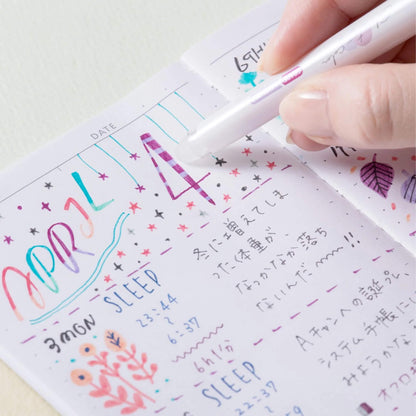 DATE
APRIL 4
冬に増えてしま
った体重が、
なっかなか落ち
ないんだ〜〜〜!!
3 MON
SLEEP
23:44
6:37
6h 1/分
SLEEP
22:37
Aチャンへの誕プレ
システム手帳に
みようかな